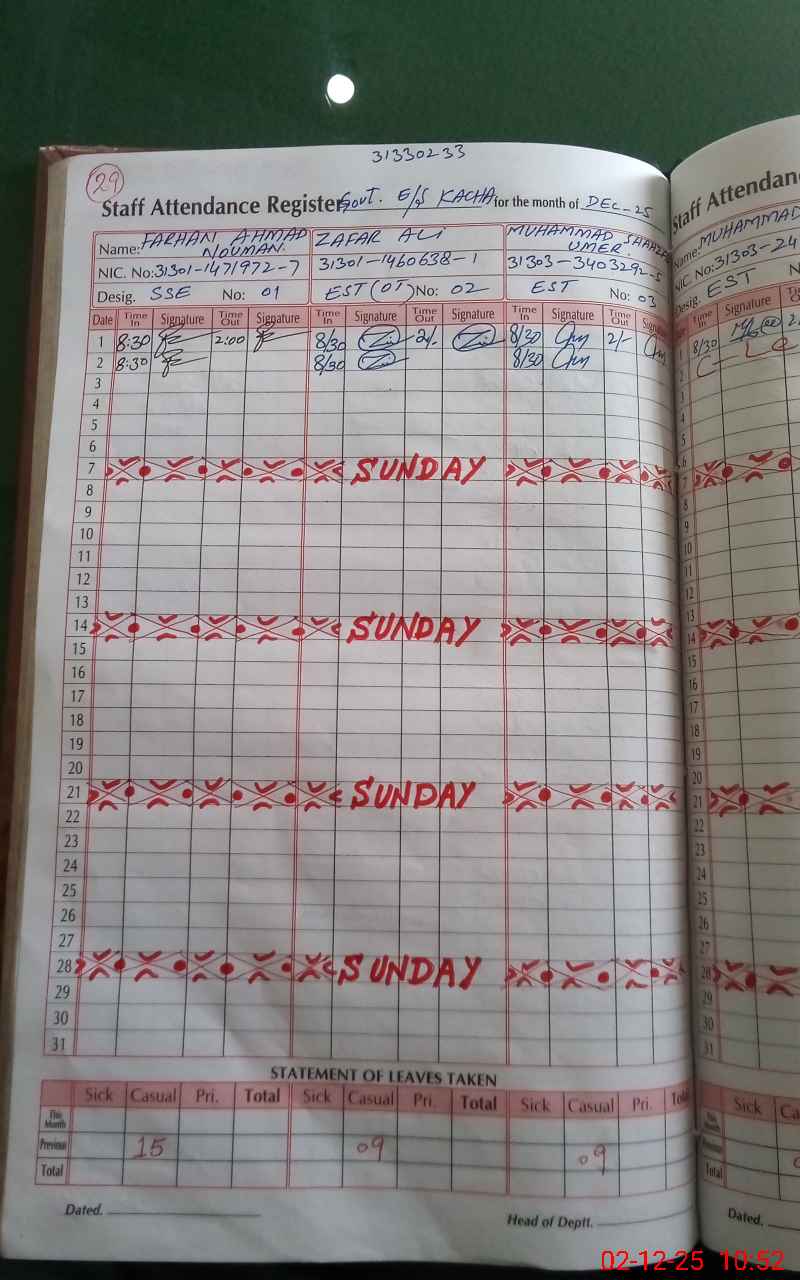 31330233
29
Staff Attendance Register Govt. E/S KACHA for the month of DEC-25
Name: FARHAN AHMAD NOUMAN. ZAFAR ALI MUHAMMAD UMER
NIC. No: 31301-1471972-7 31301-1460638-1 31303-3403292-5
Desig. SSE No: 01 EST (OT) No: 02 EST No: 03
Date Time In Signature Time Out Signature Time In Signature Time Out Signature Time In Signature Time Out
1 8:30 2:00 8/30 2/- 8/30 2/-
2 8:30 8/30 8/30
3
4
5
6
7 SUNDAY
8
9
10
11
12
13
14 SUNDAY
15
16
17
18
19
20
21 SUNDAY
22
23
24
25
26
27
28 SUNDAY
29
30
31
STATEMENT OF LEAVES TAKEN
Sick Casual Pri. Total Sick Casual Pri. Total Sick Casual Pri.
This Month
Previous 15 09 09
Total
Dated. Head of Deptt.
Staff Attendan
Name: MUHAMMAD
NIC. No: 31303-24
Desig. EST
Time In Signature
1 8/30
2 C- L
3
4
5
6
7
8
9
10
11
12
13
14
15
16
17
18
19
20
21
22
23
24
25
26
27
28
29
30
31
Sick Ca
This Month
Previous
Total
Dated.
02-12-25 10:52